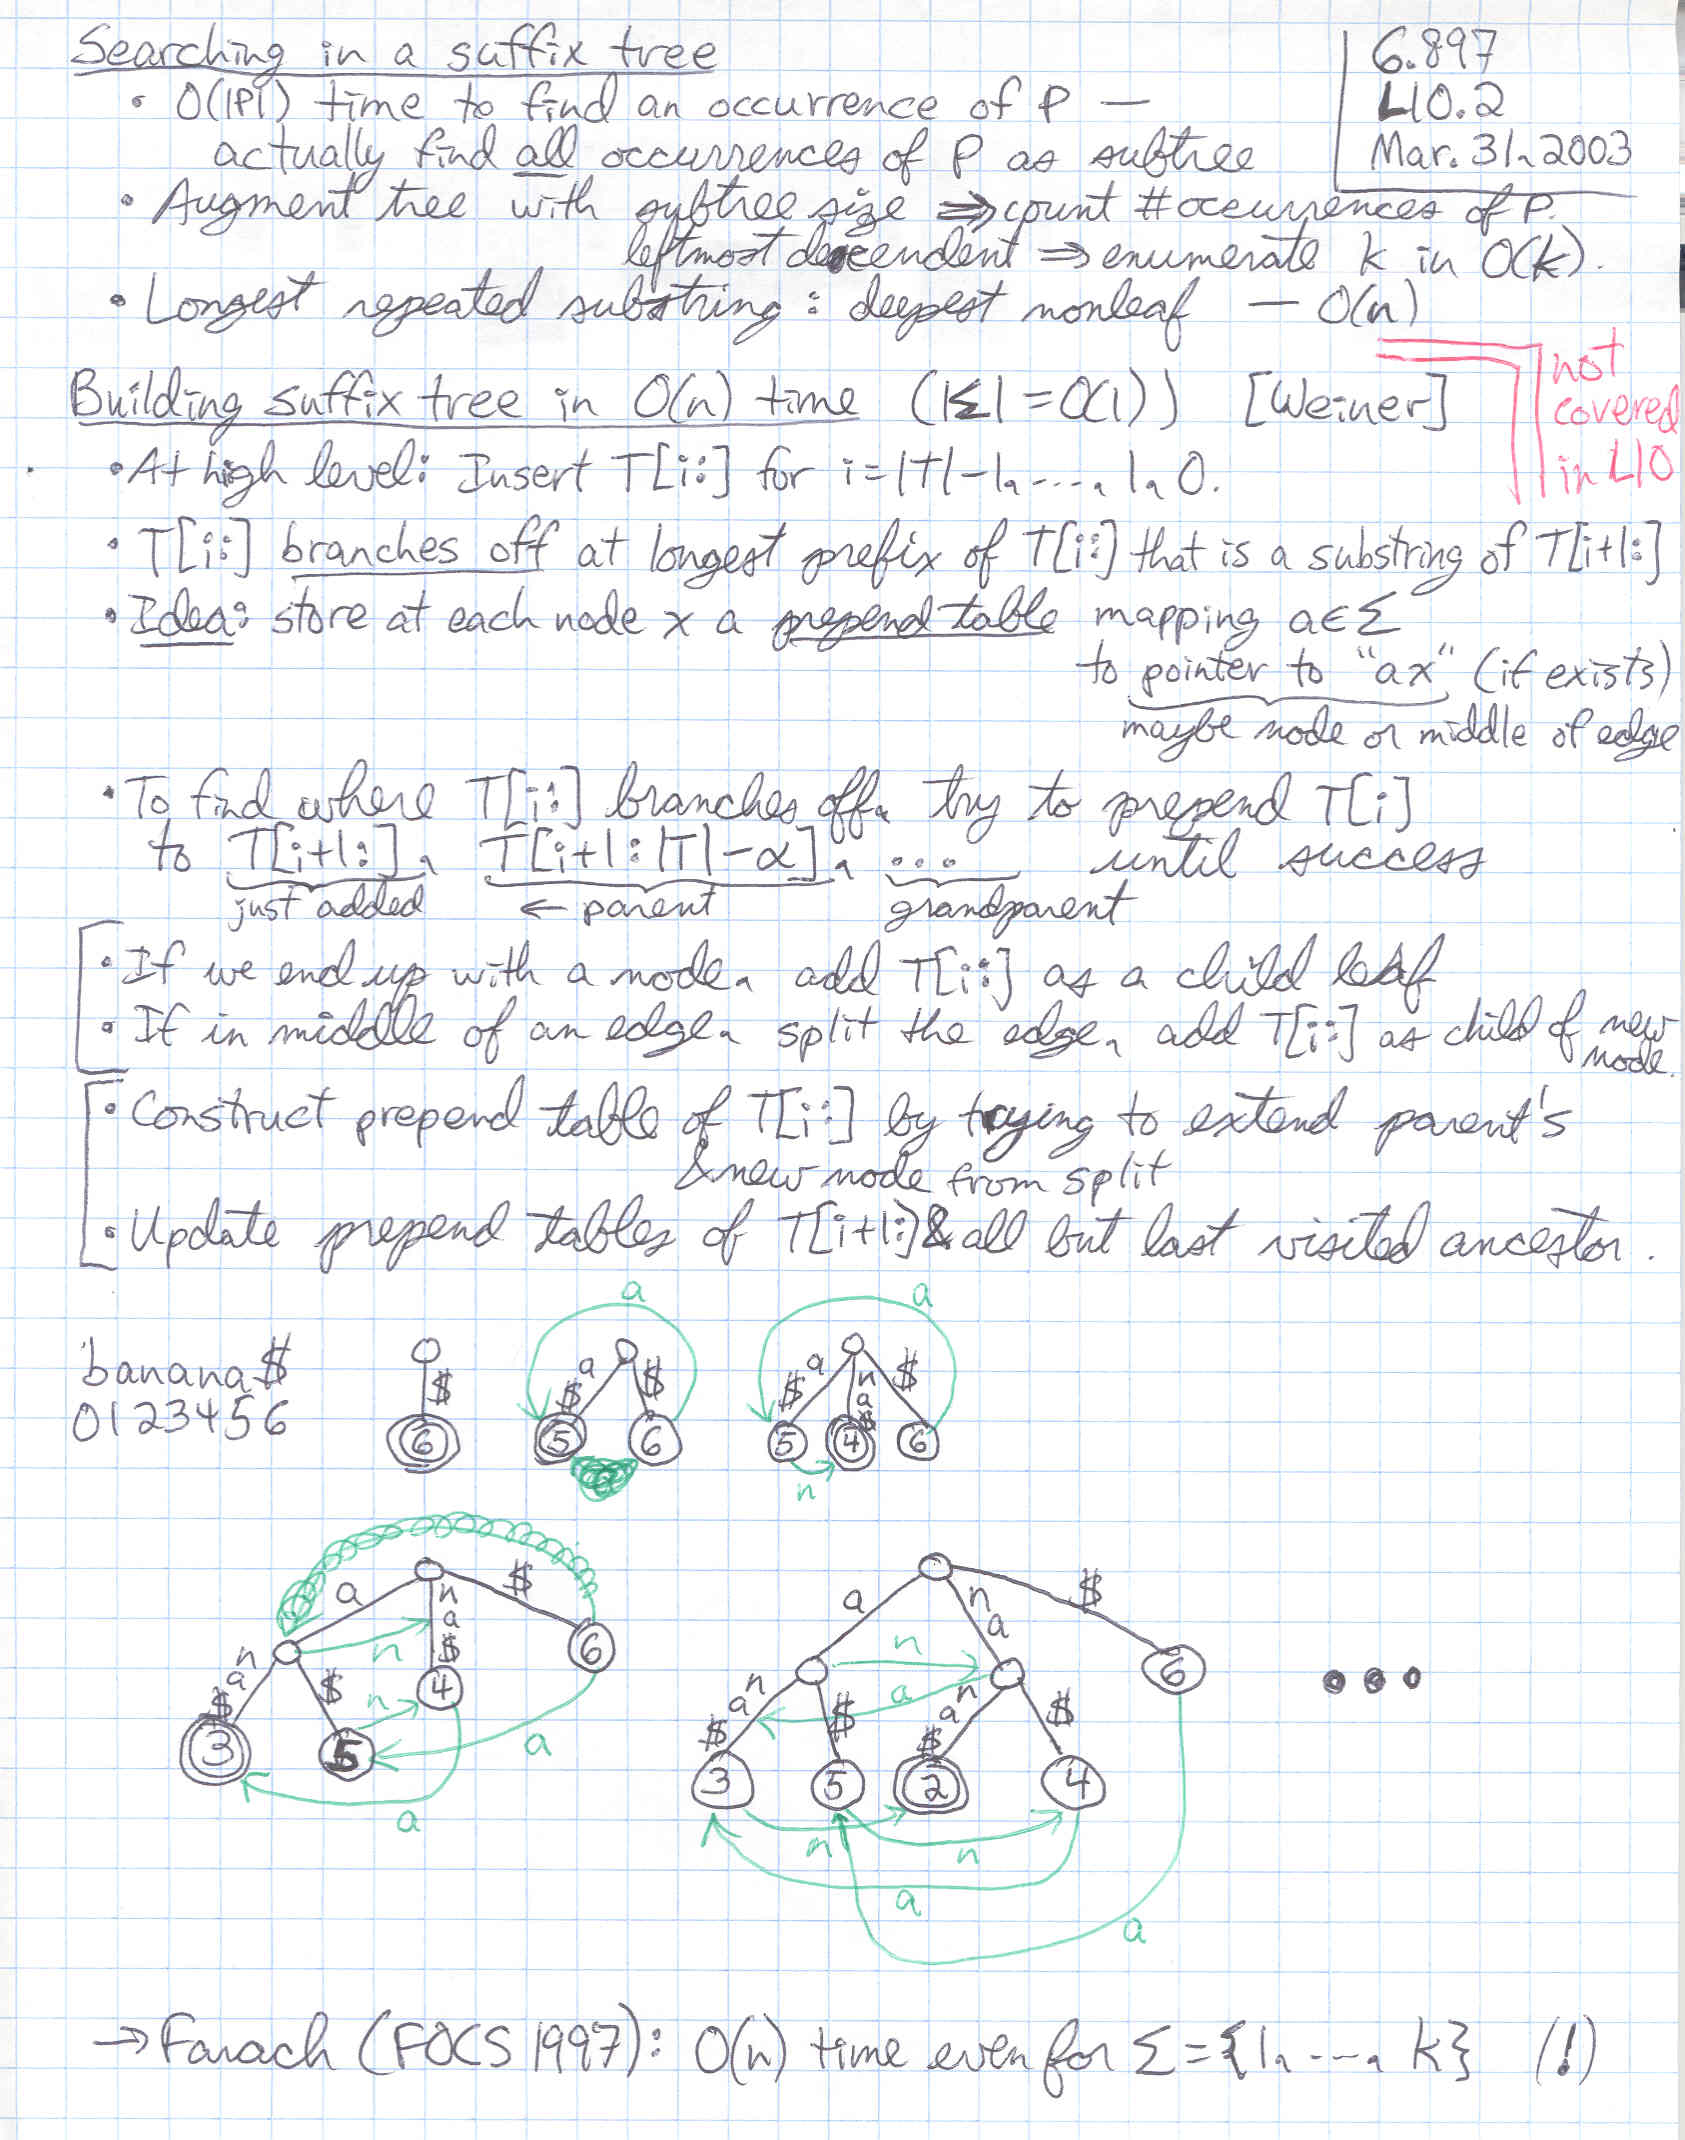 Searching in a suffix tree
6.897
L10.2
Mar. 31, 2003
• O(|P|) time to find an occurrence of P —
actually find all occurrences of P as subtree
• Augment tree with subtree size ⇒ count # occurrences of P.
leftmost descendent ⇒ enumerate k in O(k).
• Longest repeated substring : deepest nonleaf — O(n)
not
covered
in L10
Building suffix tree in O(n) time (|Σ| = O(1)) [Weiner]
• At high level: Insert T[i:] for i=|T|-1, ..., 1, 0.
• T[i:] branches off at longest prefix of T[i:] that is a substring of T[i+1:]
• Idea: store at each node x a prepend table mapping a∈Σ
to pointer to "ax" (if exists)
maybe node or middle of edge
• To find where T[i:] branches off, try to prepend T[i]
to T[i+1:], T[i+1:|T|-α], ... until success
just added ← parent grandparent
• If we end up with a node, add T[i:] as a child leaf
• If in middle of an edge, split the edge, add T[i:] as child of new
node.
• Construct prepend table of T[i:] by trying to extend parent's
& new node from split
• Update prepend tables of T[i+1:] & all but last visited ancestor.
banana$
0123456
$
6
a
a
$
$
5
6
a
a
$
n
a
$
$
5
4
6
n
a
n
a
$
$
n
n
a
$
$
n
3
5
4
6
a
a
a
n
a
$
n
a
n
a
$
$
n
a
$
$
3
5
2
4
6
n
n
a
a
• • •
→ Farach (FOCS 1997): O(n) time even for Σ = {1, ..., k} (!)